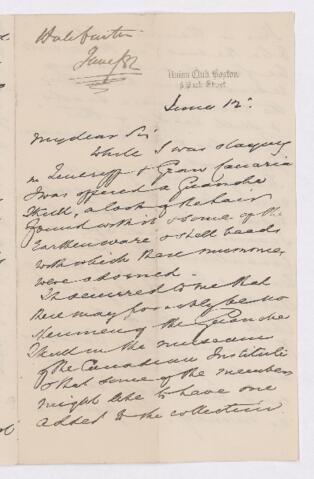 June/82
Union Club, Boston
8 Park Street
June 12.
My dear Sir
While I was staying
in Teneriff & Gran Canaria
I was offered a Guanche
Skull, a lock of the hair
found with it & some of the
Earthenware & shell beads
with which these mummies
were adorned.
It occurred to me that
there may possibly be no
specimen of the Guanche
Skull in the museum
of the Canadian Institute
& that some of the members
might like to have one
added to the collection